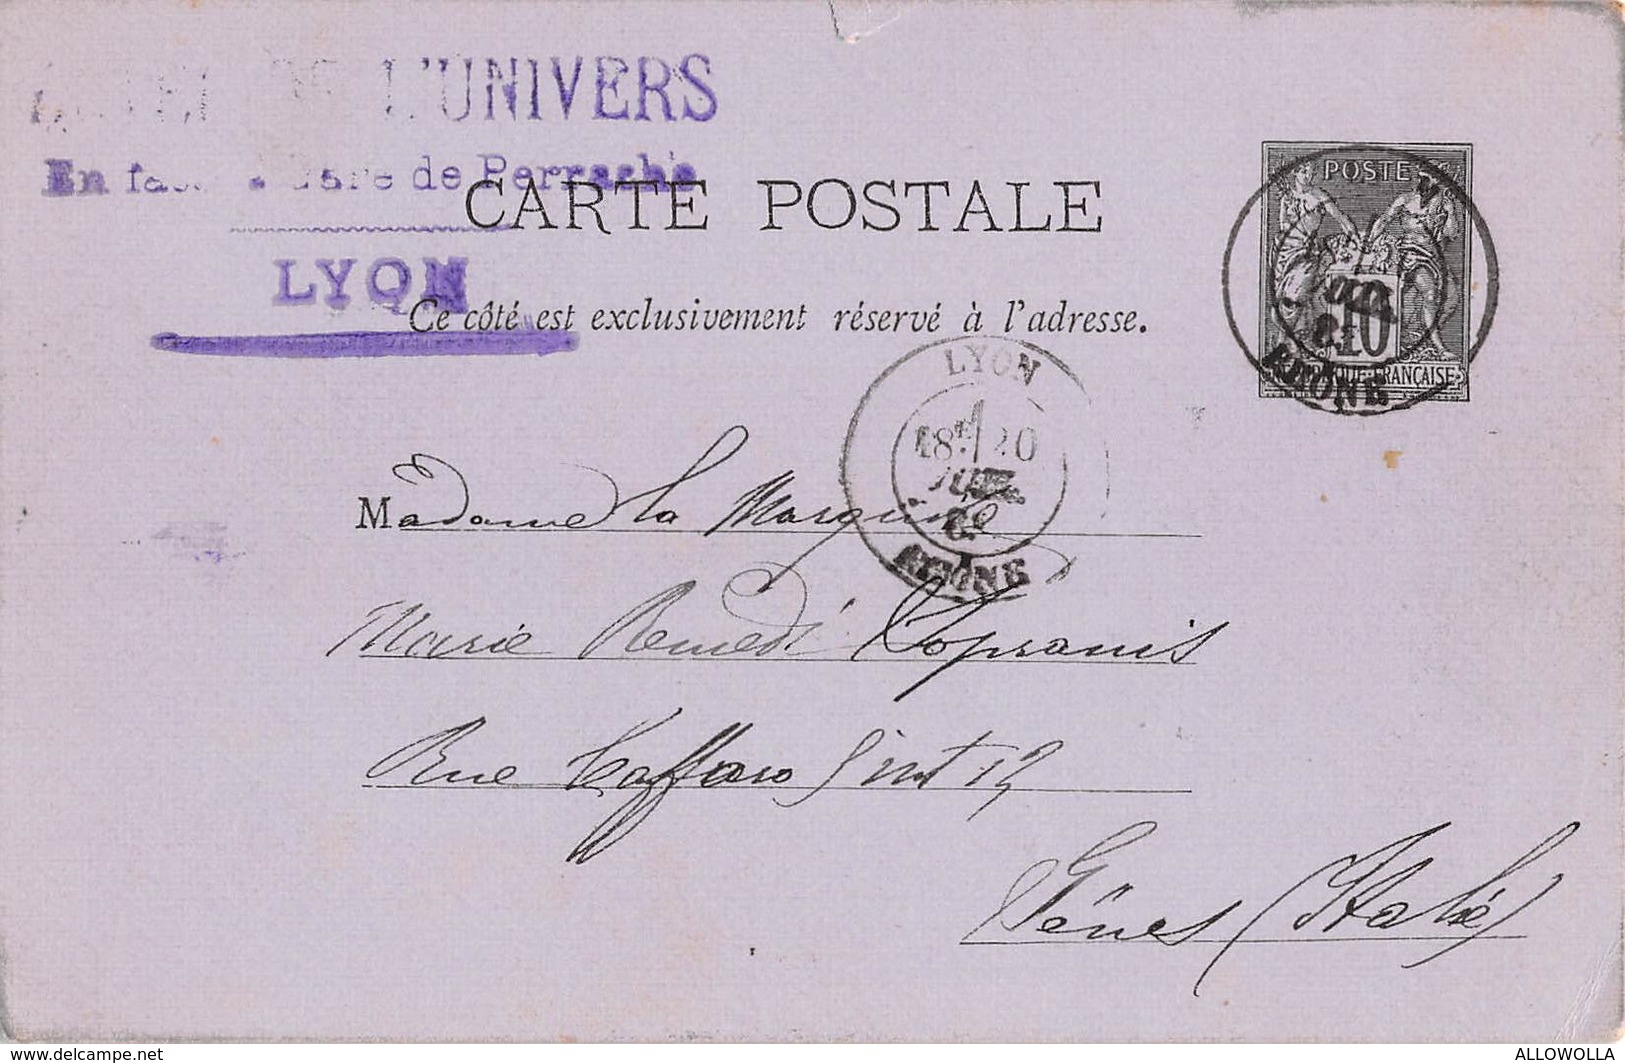 L'UNIVERS
En fa... Gare de Perrache
LYON
CARTE POSTALE
Ce côté est exclusivement réservé à l'adresse.
POSTES
10
RÉPUBLIQUE FRANÇAISE
RHONE
LYON
18E/20
JUIL
RHONE
Madame la Marquise
Marie Remedi Sopranis
Rue Caffaro Int 12
Gênes (Italie)
www.delcampe.net
ALLOWOLLA